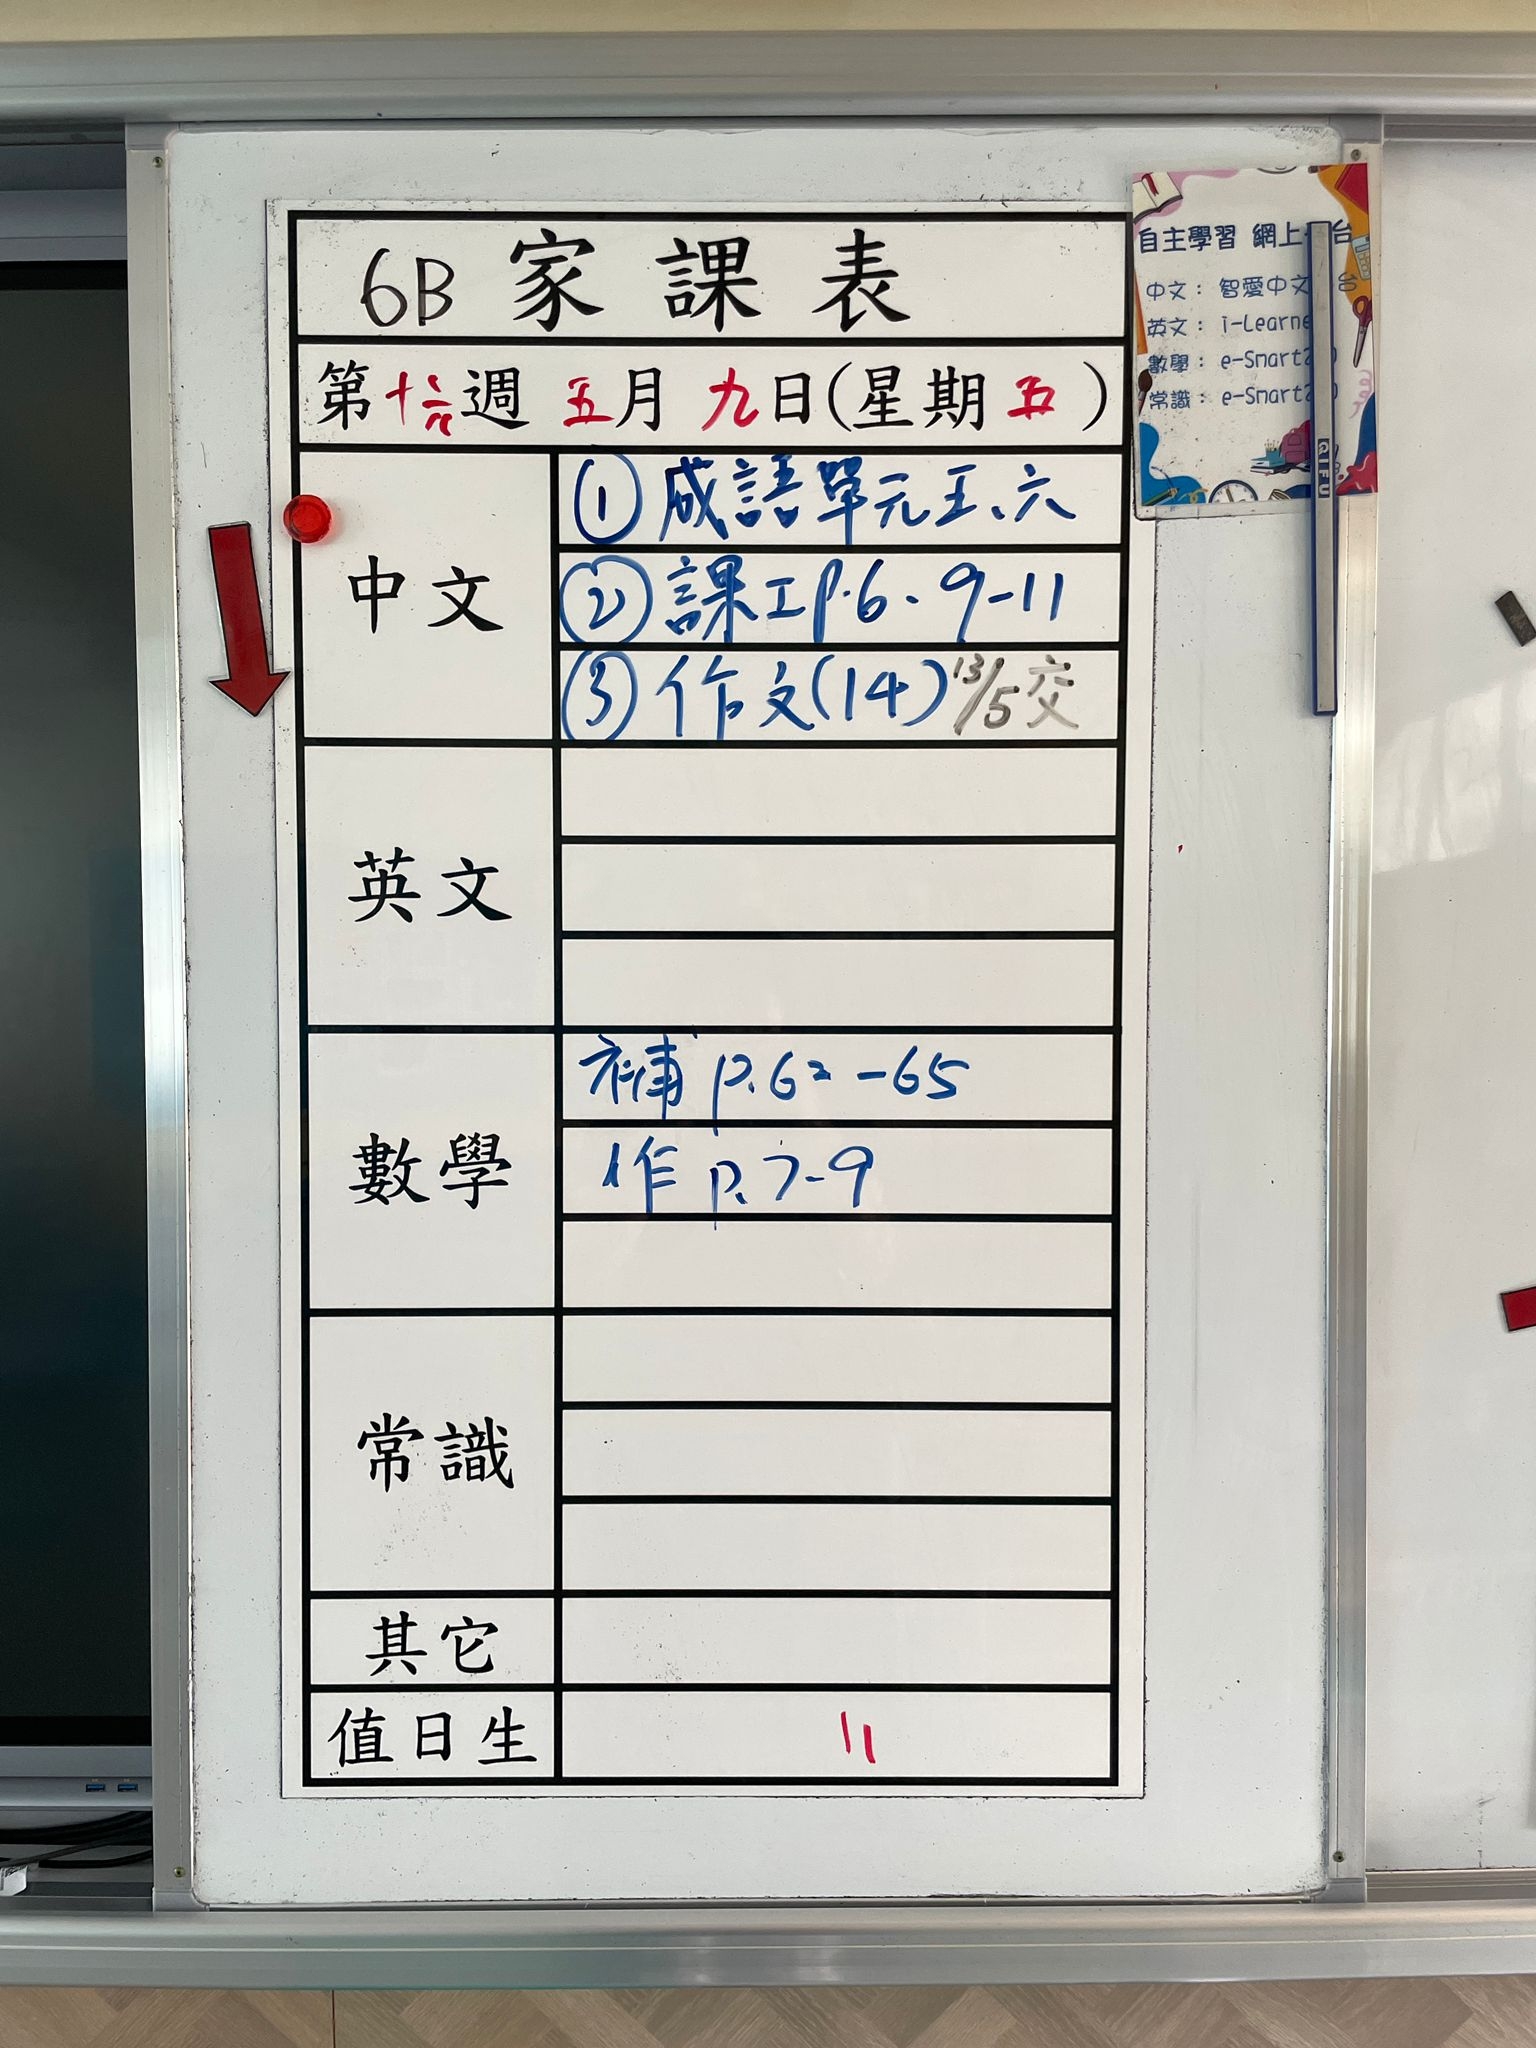 6B 家課表
第十六週 五月九日(星期五)
中文
① 成語單元五、六
② 課工p.6、9-11
③ 作文(14) 13/5交
英文
數學
補 p.62-65
作 p.7-9
常識
其它
值日生 11
自主學習 網上 台
中文: 智愛中文 台
英文: i-Learne
數學: e-Smart2 0
常識: e-Smart2 0
QIFU